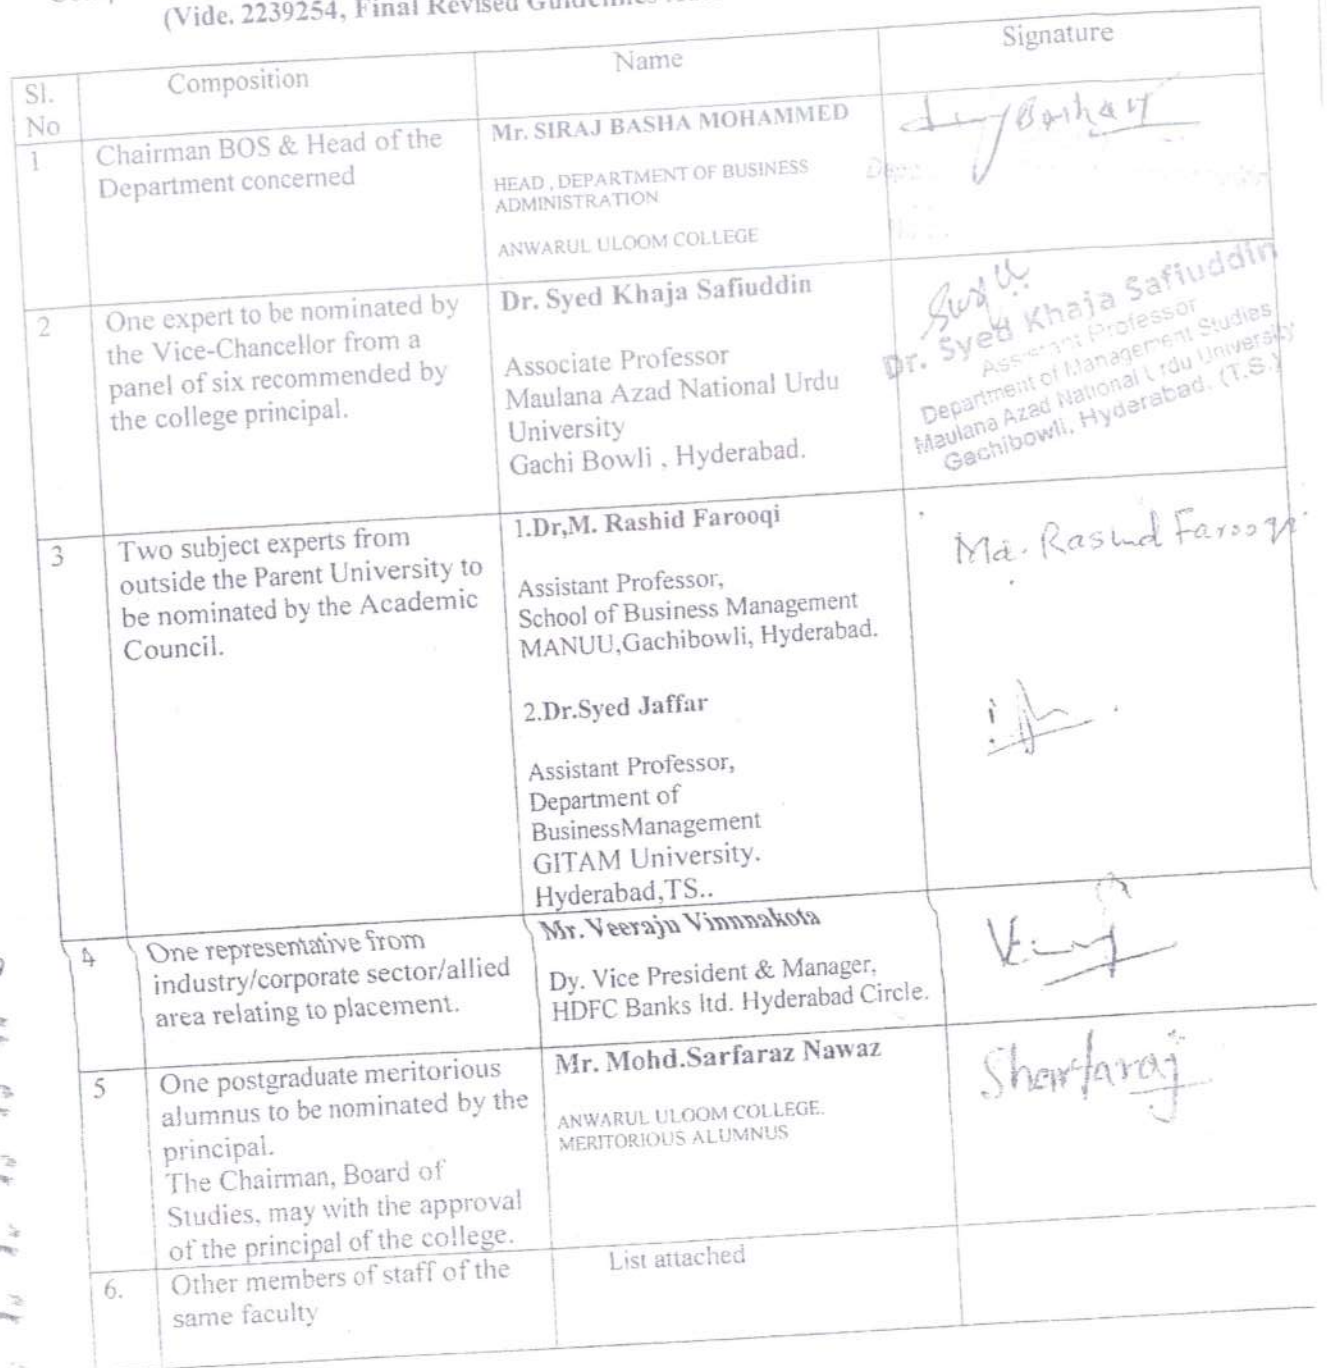 (Vide. 2239254, Final Revised Guidelines
Sl.
No
Composition
Name
Signature
1
Chairman BOS & Head of the
Department concerned
Mr. SIRAJ BASHA MOHAMMED
HEAD , DEPARTMENT OF BUSINESS
ADMINISTRATION
ANWARUL ULOOM COLLEGE
2
One expert to be nominated by
the Vice-Chancellor from a
panel of six recommended by
the college principal.
Dr. Syed Khaja Safiuddin
Associate Professor
Maulana Azad National Urdu
University
Gachi Bowli , Hyderabad.
Dr. Syed Khaja Safiuddin
Assistant Professor
Department of Management Studies
Maulana Azad National Urdu University
Gachibowli, Hyderabad. (T.S.)
3
Two subject experts from
outside the Parent University to
be nominated by the Academic
Council.
1.Dr,M. Rashid Farooqi
Assistant Professor,
School of Business Management
MANUU,Gachibowli, Hyderabad.
Md. Rashid Farooqi
2.Dr.Syed Jaffar
Assistant Professor,
Department of
BusinessManagement
GITAM University.
Hyderabad,TS..
4
One representative from
industry/corporate sector/allied
area relating to placement.
Mr. Veeraju Vinnnakota
Dy. Vice President & Manager,
HDFC Banks ltd. Hyderabad Circle.
5
One postgraduate meritorious
alumnus to be nominated by the
principal.
The Chairman, Board of
Studies, may with the approval
of the principal of the college.
Mr. Mohd.Sarfaraz Nawaz
ANWARUL ULOOM COLLEGE.
MERITORIOUS ALUMNUS
6.
Other members of staff of the
same faculty
List attached